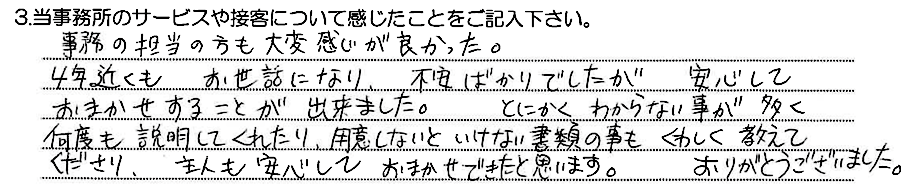 3.当事務所のサービスや接客について感じたことをご記入下さい。
事務の担当の方も大変感じが良かった。
4年近くも お世話になり、 不安ばかりでしたが 安心して
おまかせすることが 出来ました。 とにかく わからない事が 多く
何度も 説明してくれたり、用意しないと いけない書類の事も くわしく 教えて
くださり、 主人も 安心して おまかせできたと思います。 ありがとうございました。